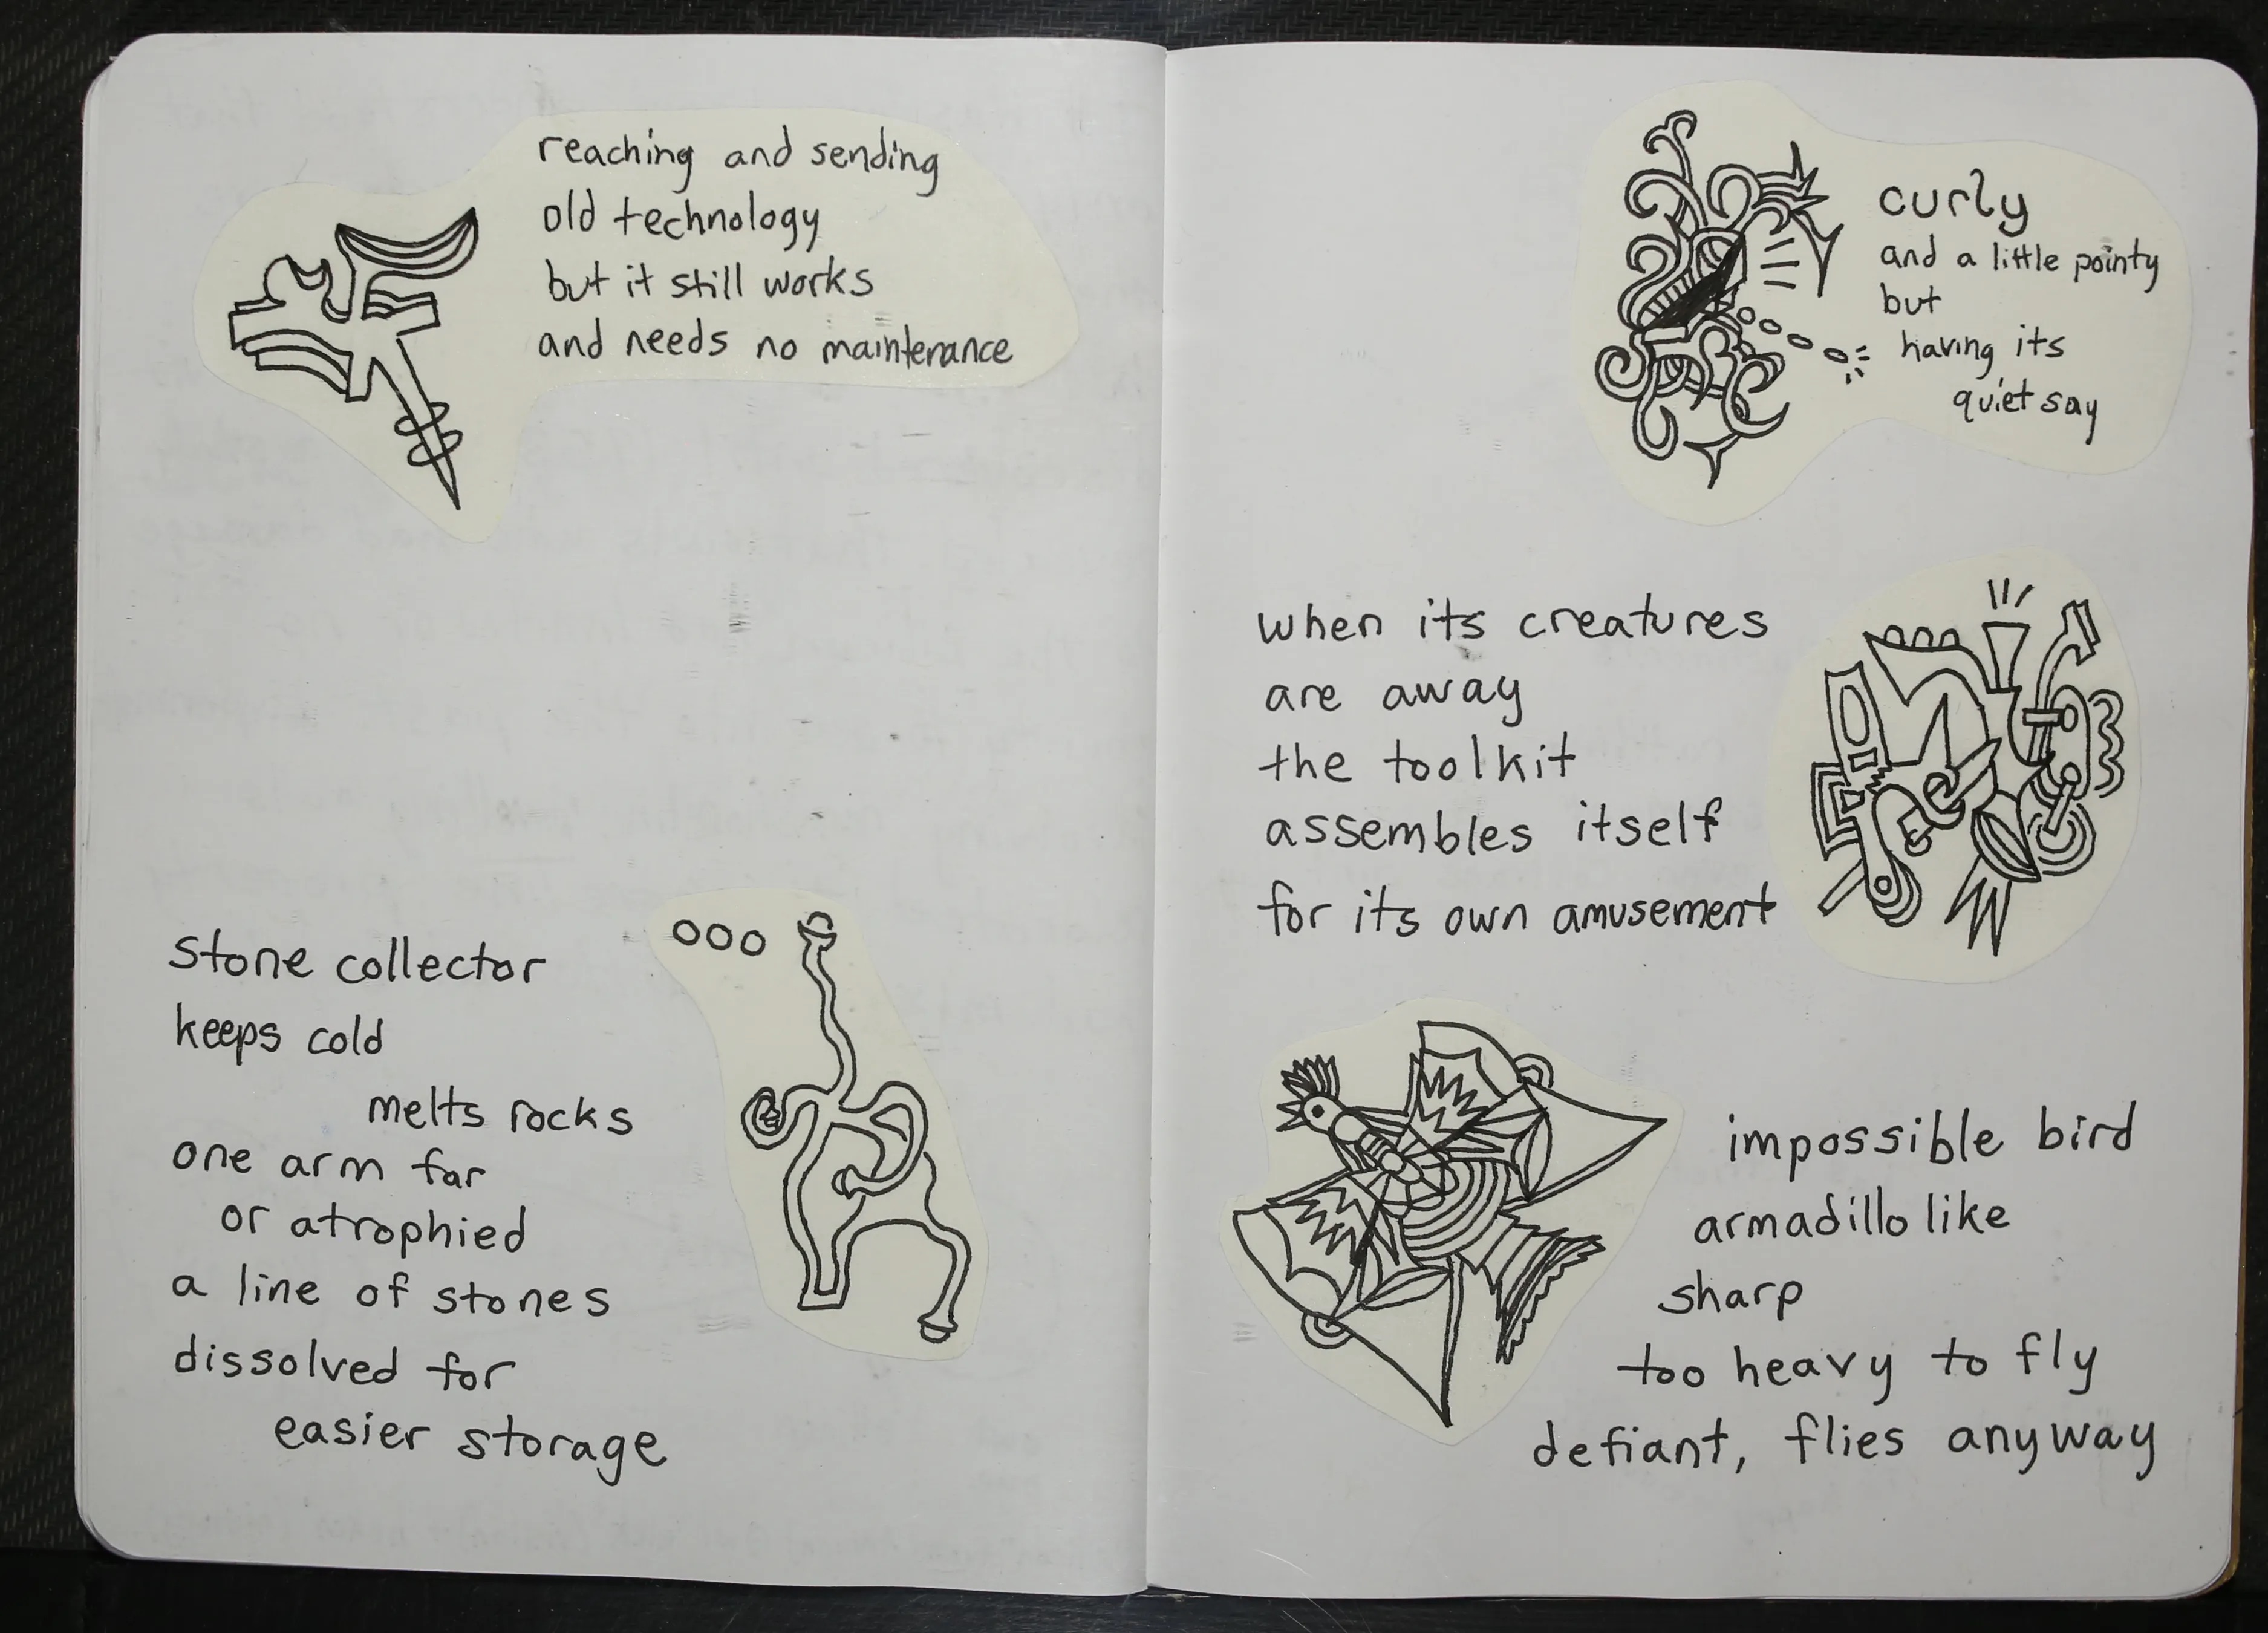 reaching and sending
old technology
but it still works
and needs no maintenance
stone collector
keeps cold
melts rocks
one arm far
or atrophied
a line of stones
dissolved for
easier storage
curly
and a little pointy
but
having its
quiet say
when its creatures
are away
the toolkit
assembles itself
for its own amusement
impossible bird
armadillo like
sharp
too heavy to fly
defiant, flies anyway